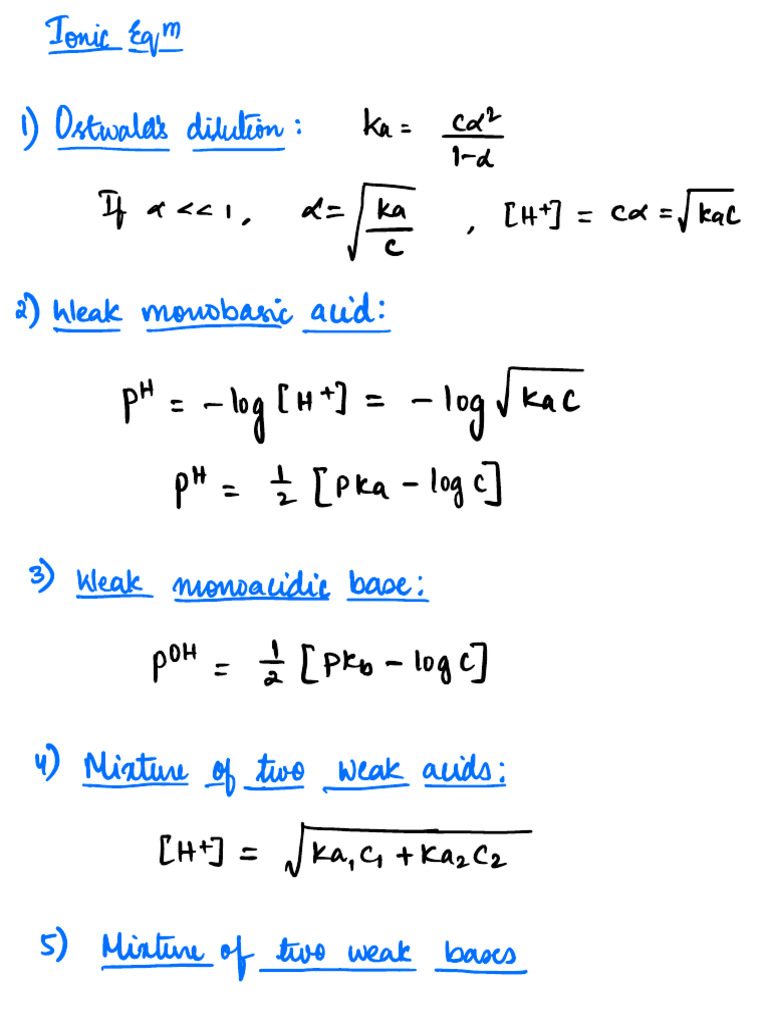 Ionic Eqᵐ
1) Ostwald's dilution: Ka = cα²/1-α
If α << 1, α = √(Ka/C), [H⁺] = Cα = √KaC
2) Weak monobasic acid:
Pᴴ = -log [H⁺] = -log √KaC
Pᴴ = 1/2 [PKa - log C]
3) Weak monoacidic base:
Pᴼᴴ = 1/2 [PKb - log C]
4) Mixture of two weak acids:
[H⁺] = √Ka₁C₁ + Ka₂C₂
5) Mixture of two weak bases